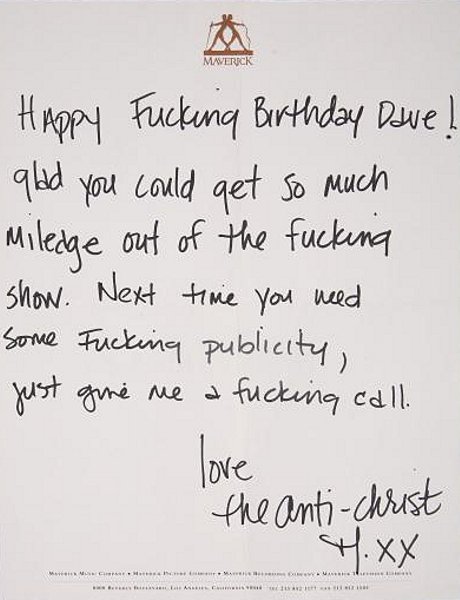 MAVERICK
HAppy Fucking Birthday Dave!
glad you could get so much
Miledge out of the fucking
show. Next time you need
some Fucking publicity,
just give me a fucking call.
love
the anti-christ
M. XX
MAVERICK MUSIC COMPANY • MAVERICK PICTURE COMPANY • MAVERICK RECORDING COMPANY • MAVERICK TELEVISION COMPANY
8000 BEVERLY BOULEVARD, LOS ANGELES, CALIFORNIA 90048 TEL 213 852 1177 FAX 213 852 1505